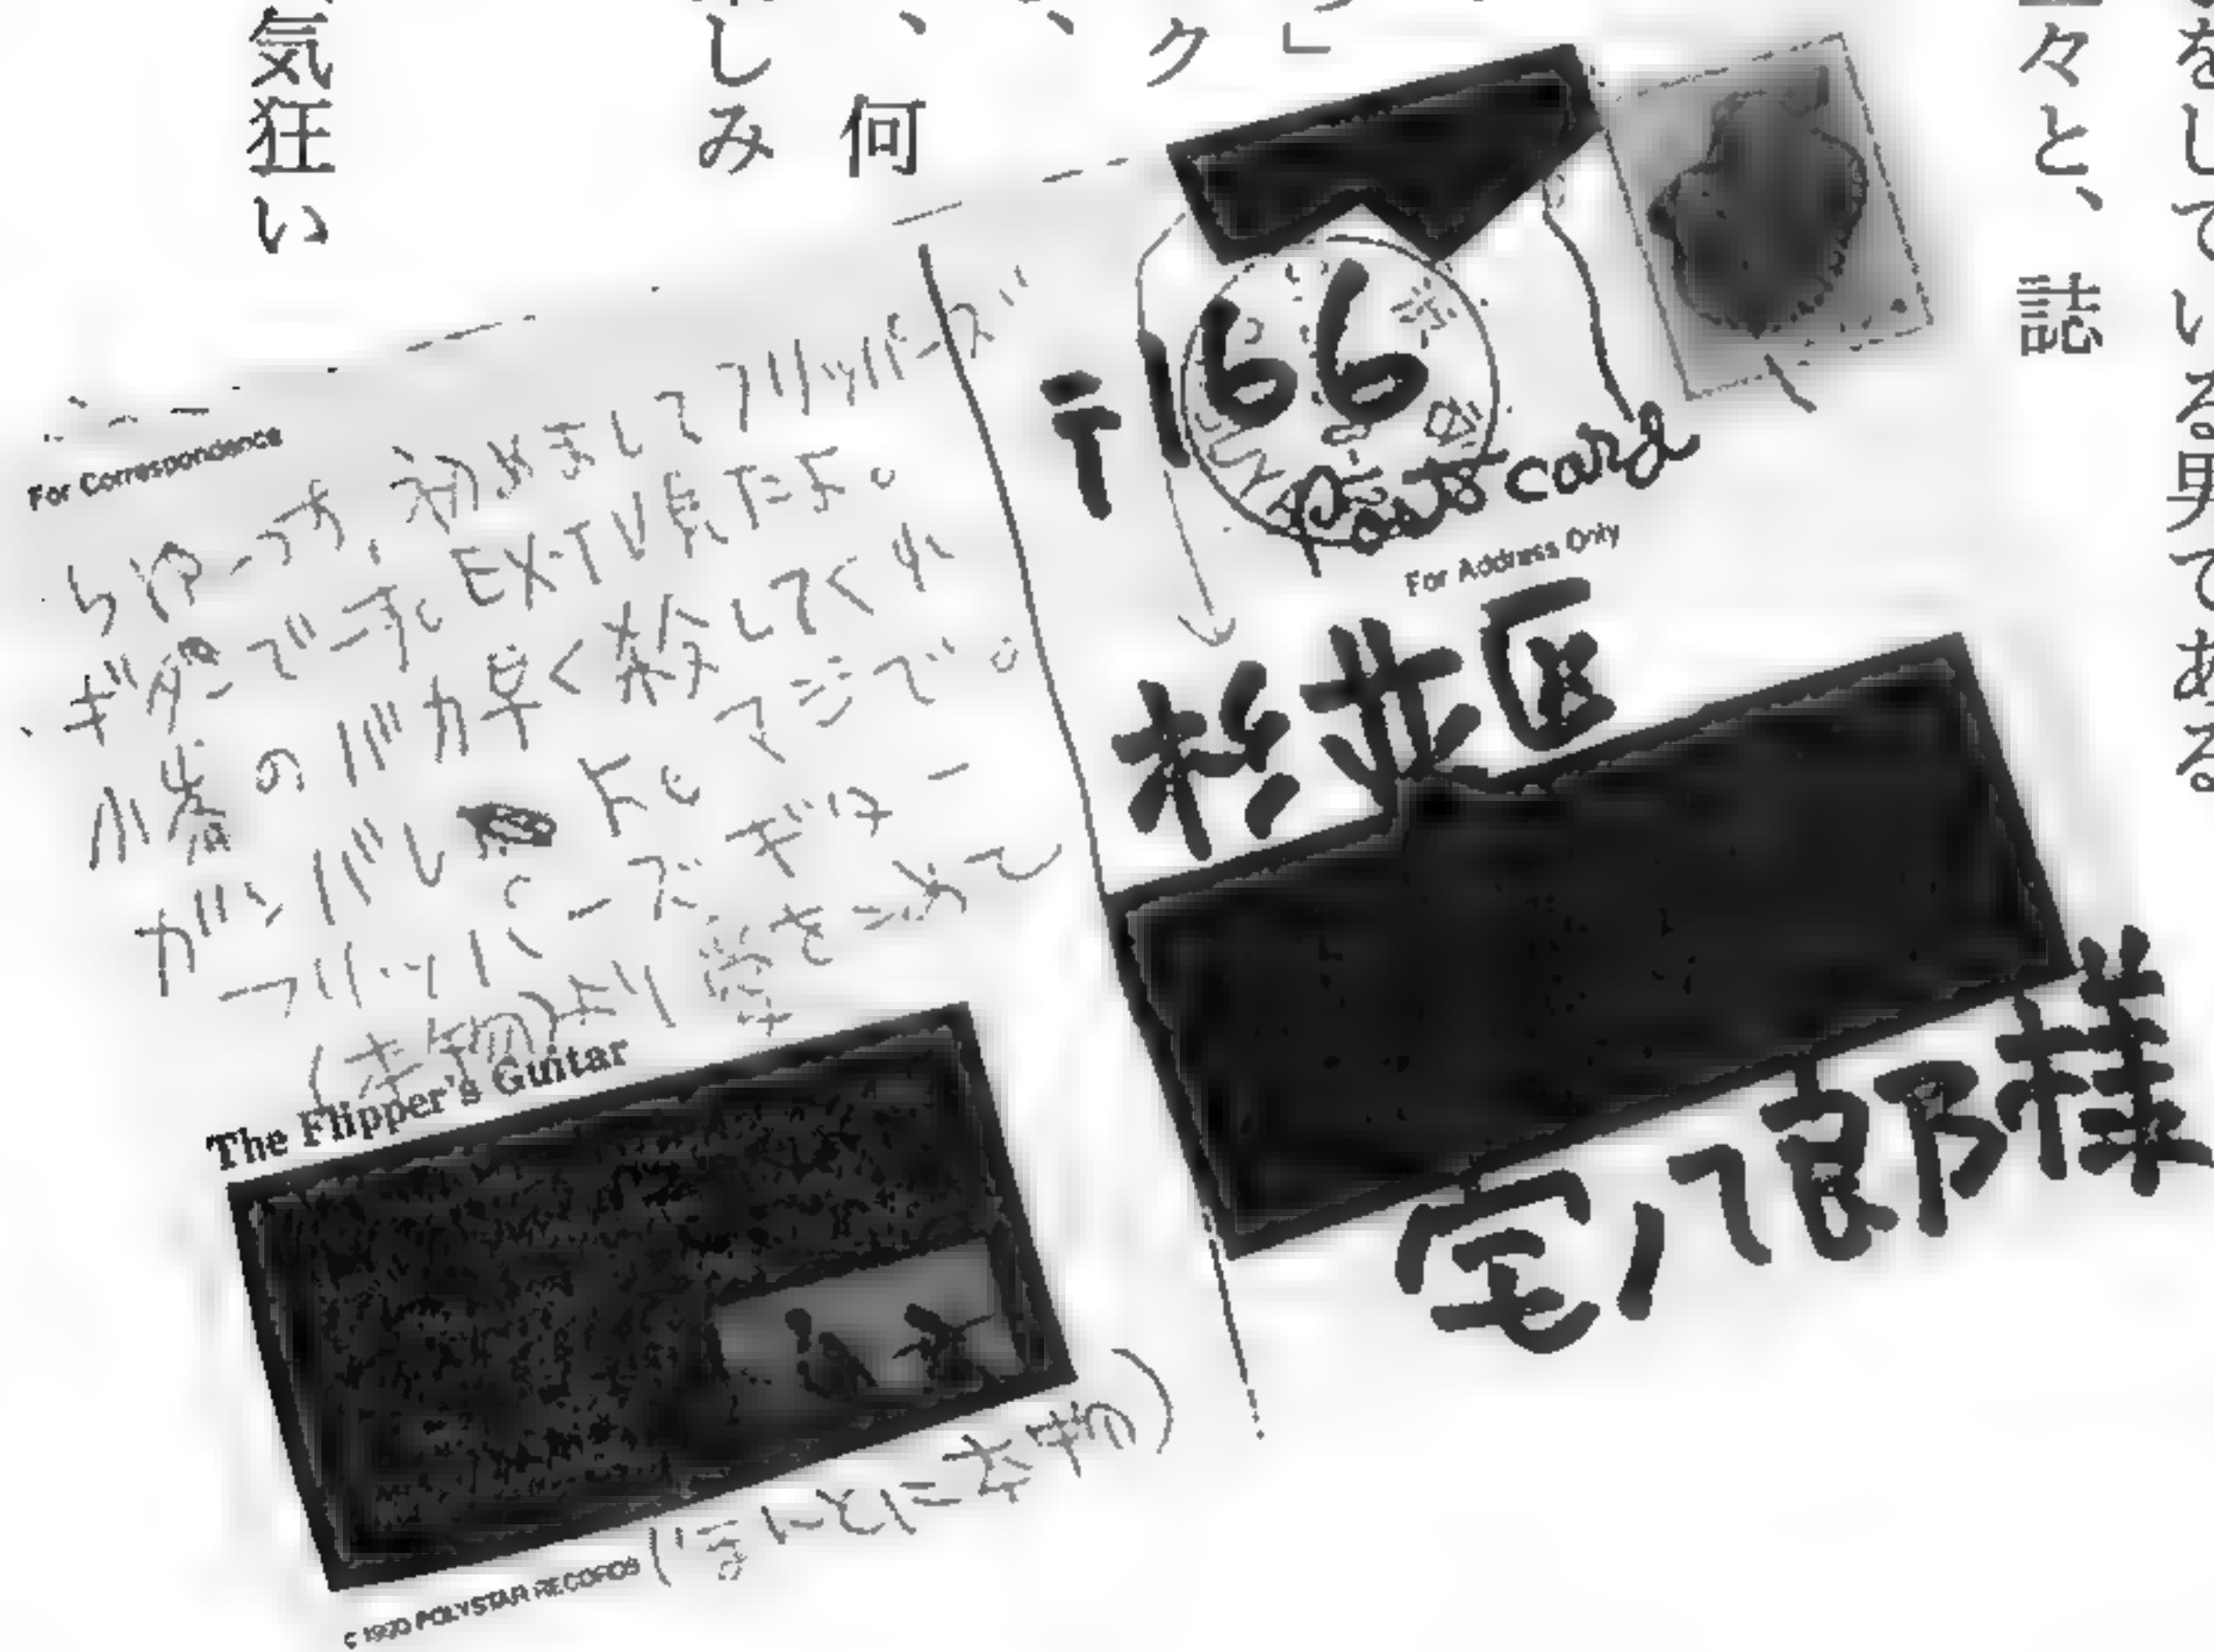 気狂い
しみ
、何
ク
」
々と、誌
をしている男である。
For Correspondence
ちわーっす、初めましてフリッパーズ
ギターでーす。EX-TV見たよ。
小山田のバカ早く殺してくれ
ガンバレよ。マジで。
フリッパーズ・ギター
(本物)より愛をこめて
The Flipper's Guitar
(ほんとに本物)
c 1990 POLYSTAR RECORDS
〒166
Post card
For Address Only
杉並区
宅八郎様